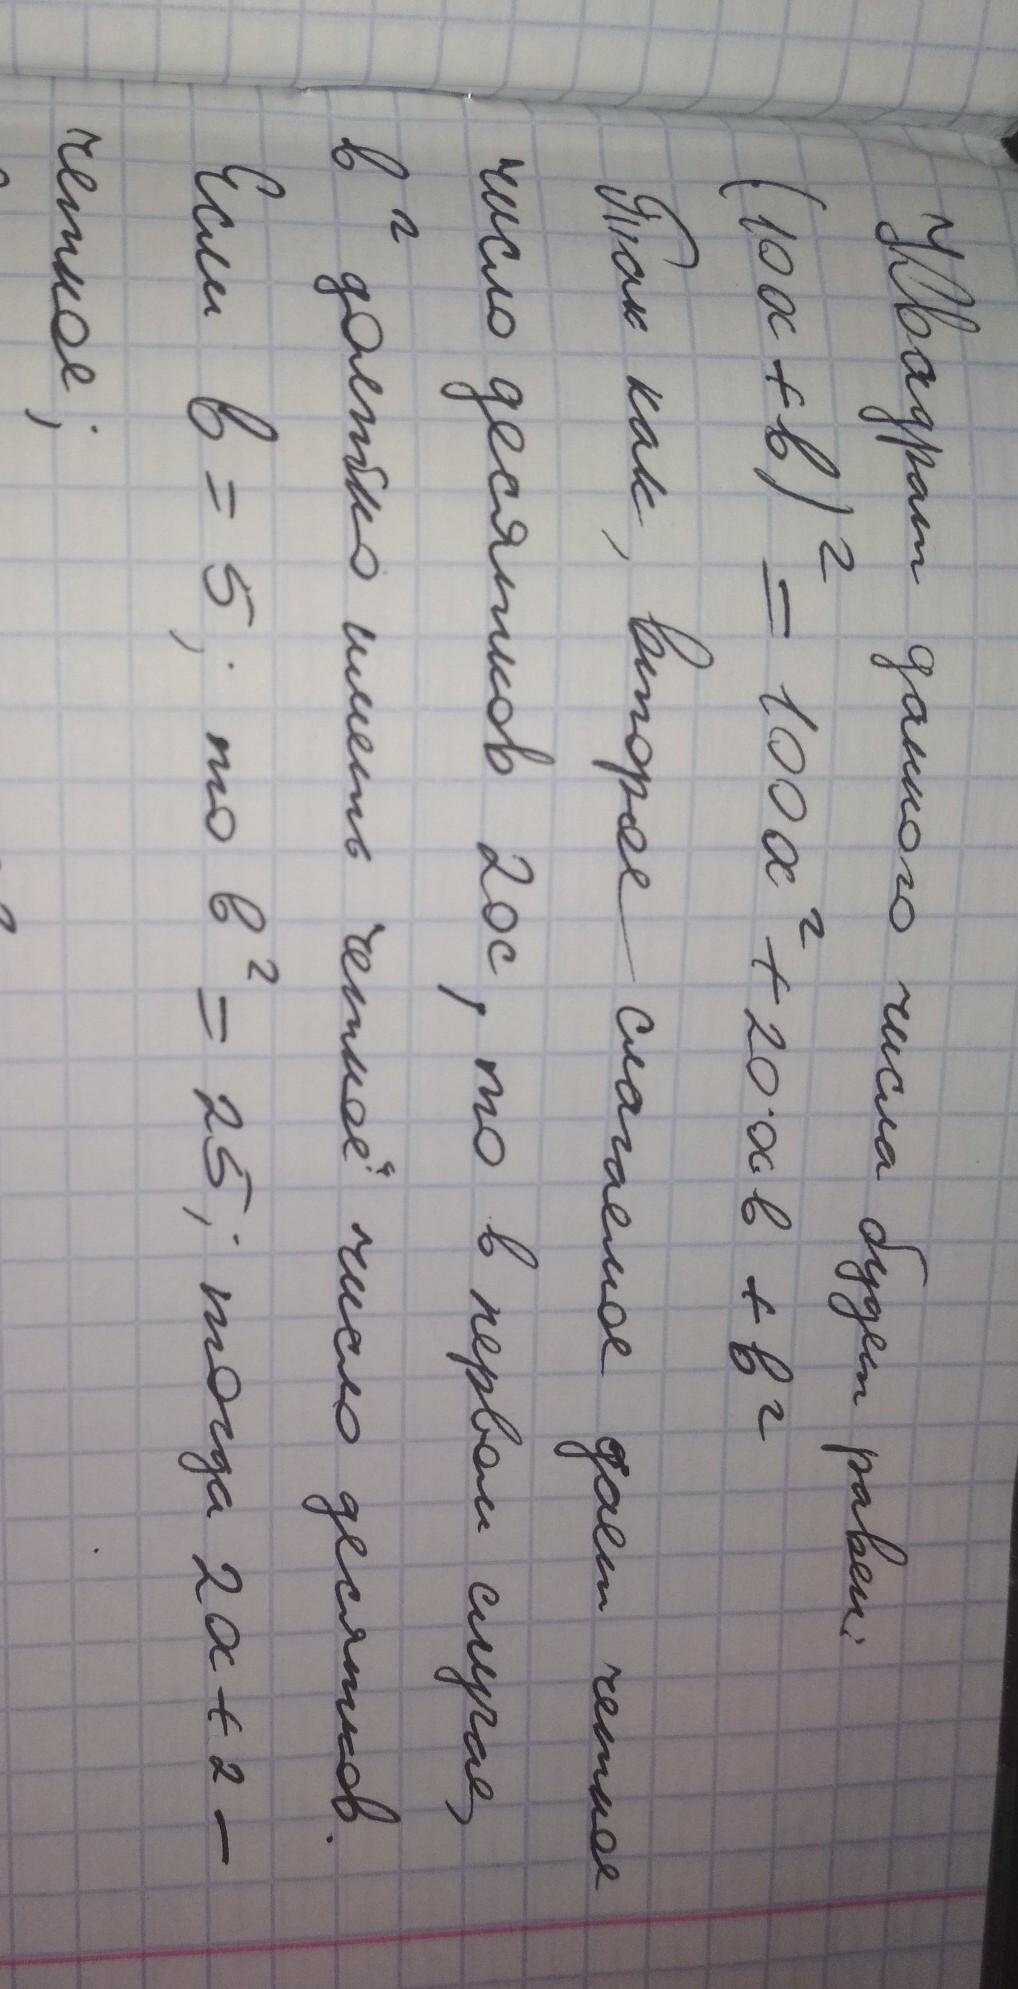 Квадрат данного числа будет равен:
(10a+b)² = 100a² + 20·a·b + b²
Так как, второе слагаемое дает четное
число десятков 2ac, то в первом случае,
b² должно иметь четное число десятков.
Если b = 5; то b² = 25; тогда 2a + 2 –
четное;